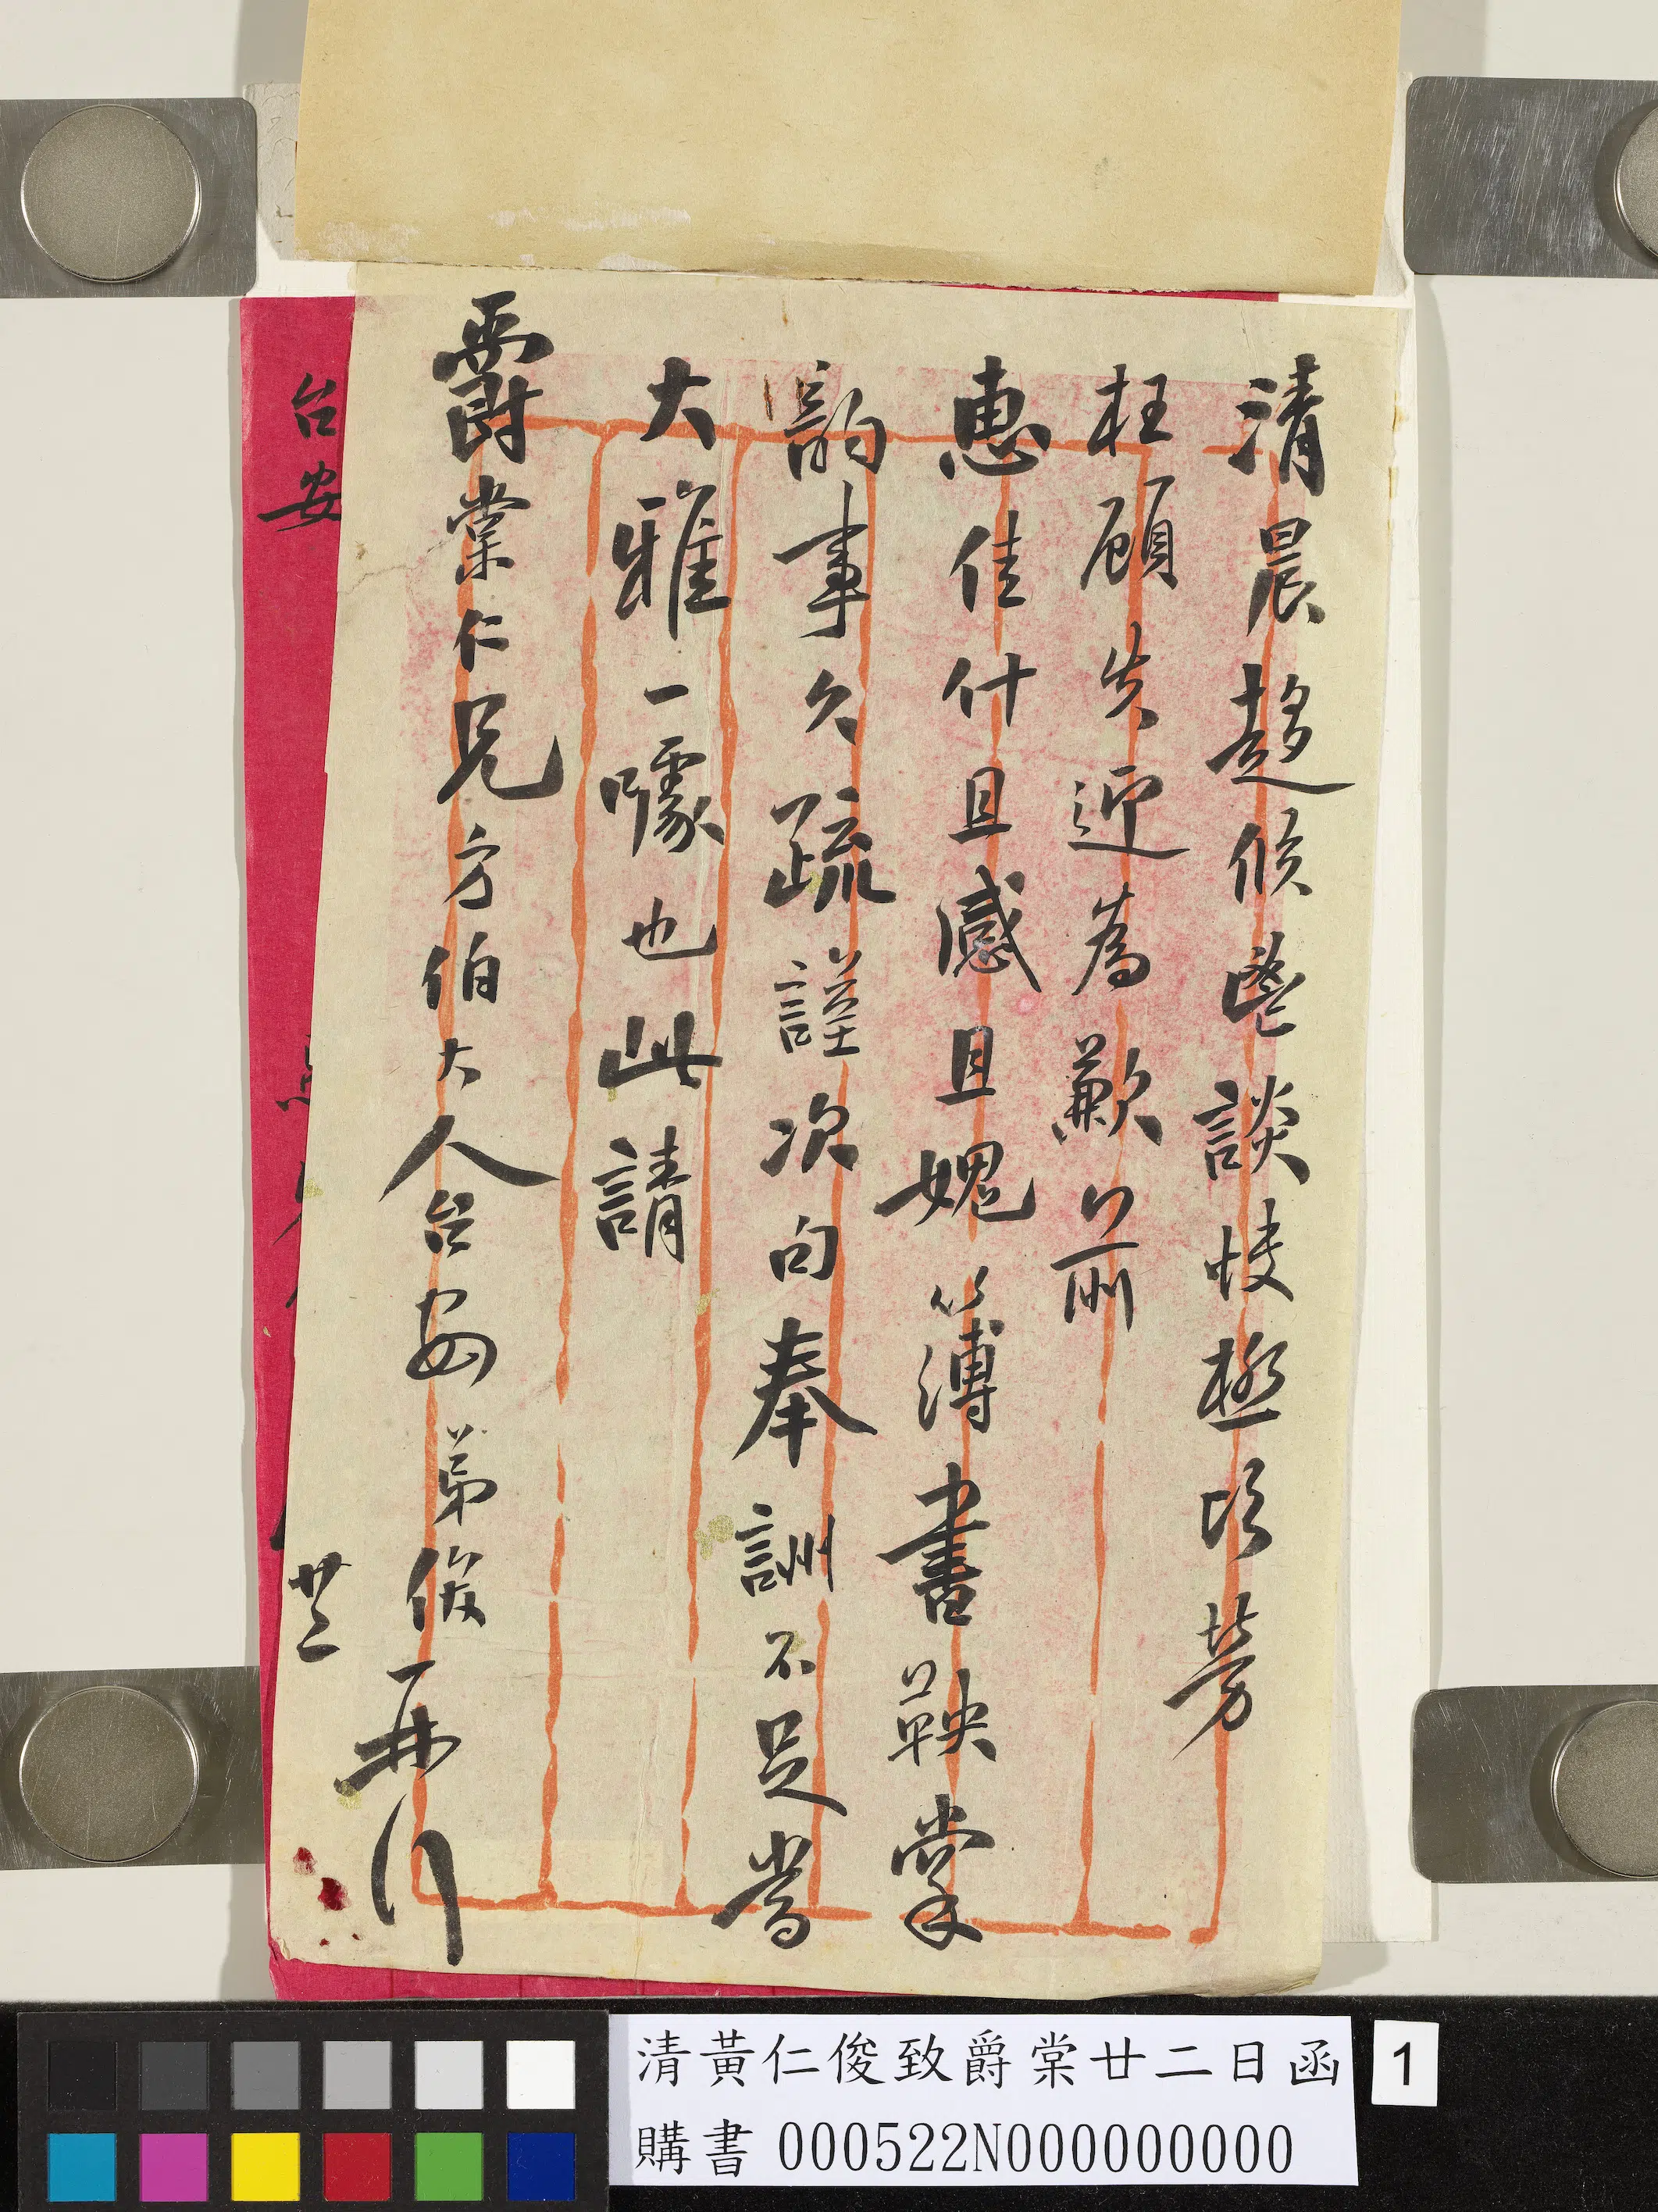 清晨趨候暢談快極頃勞
枉顧失迎為歉前
惠佳什且感且媿簿書鞅掌
韵事久疏謹次句奉詶不足當
大雅一噱也此請
爵棠仁兄方伯大人台安 弟俊再行
廿二
台安
清黃仁俊致爵棠廿二日函
購書 000522N000000000
1